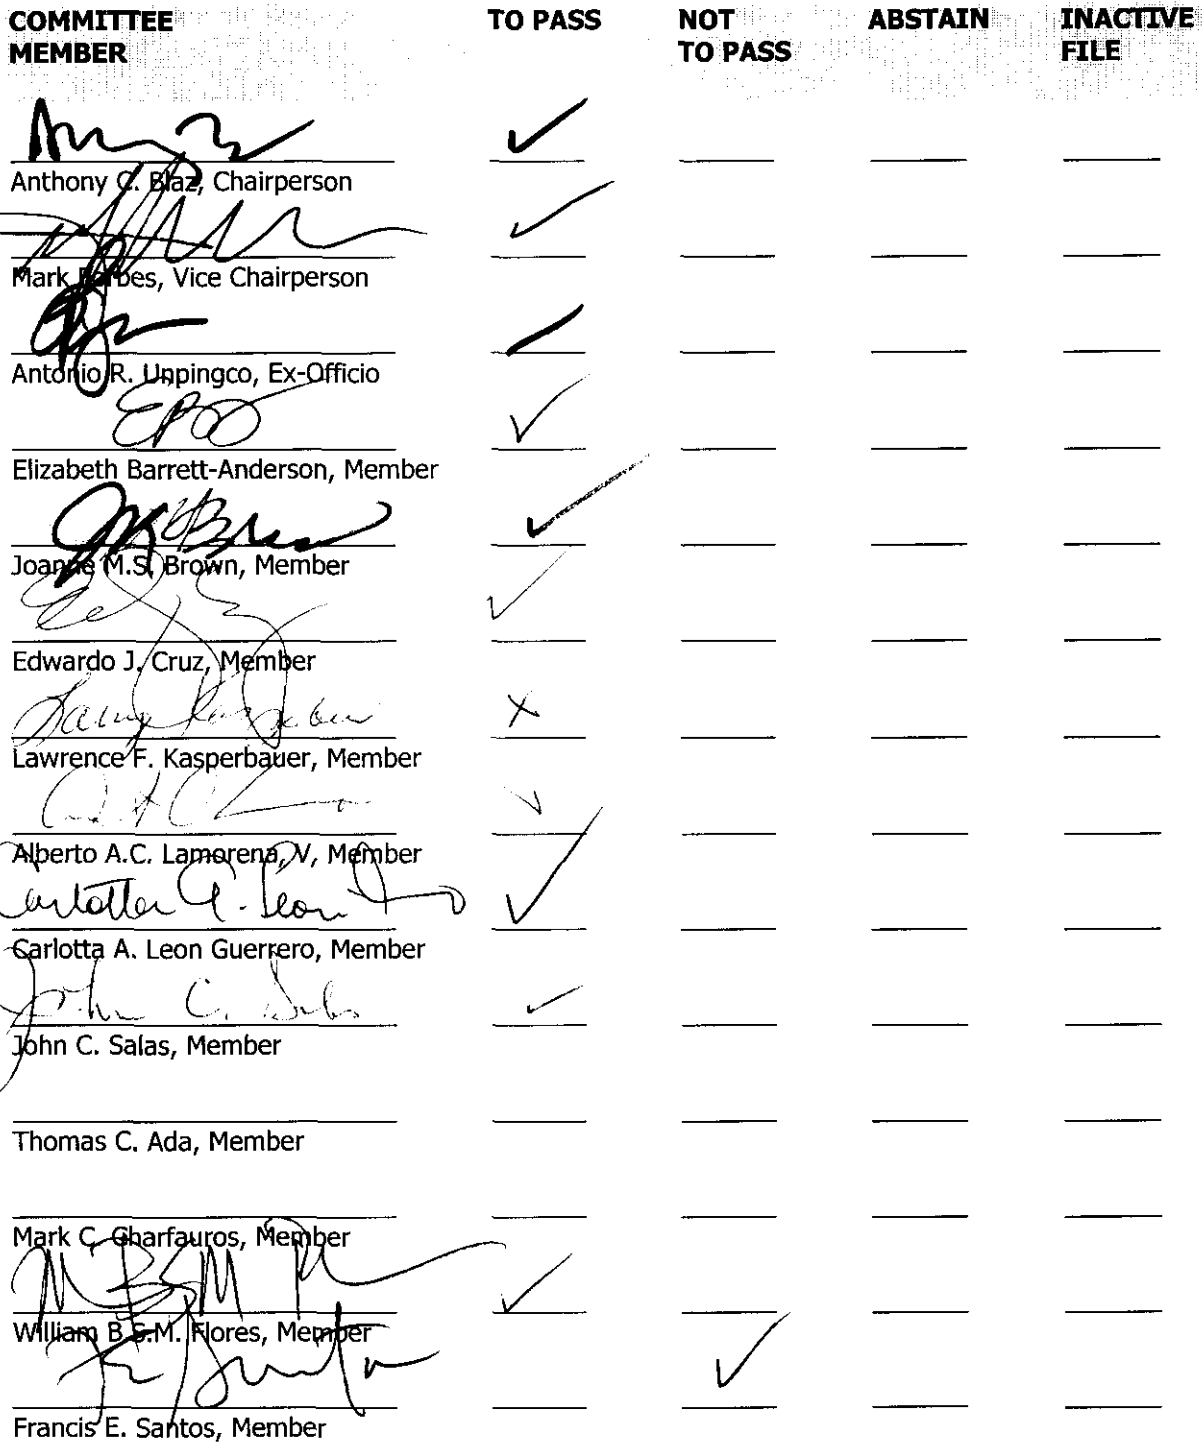 COMMITTEE MEMBER TO PASS NOT TO PASS ABSTAIN INACTIVE FILE
Anthony C. Blaz, Chairperson
Mark Forbes, Vice Chairperson
Antonio R. Unpingco, Ex-Officio
Elizabeth Barrett-Anderson, Member
Joanne M.S. Brown, Member
Edwardo J. Cruz, Member
Lawrence F. Kasperbauer, Member
Alberto A.C. Lamorena, V, Member
Carlotta A. Leon Guerrero
Carlotta A. Leon Guerrero, Member
John C. Salas
John C. Salas, Member
Thomas C. Ada, Member
Mark C. Charfauros, Member
William B.S.M. Flores, Member
Francis E. Santos, Member